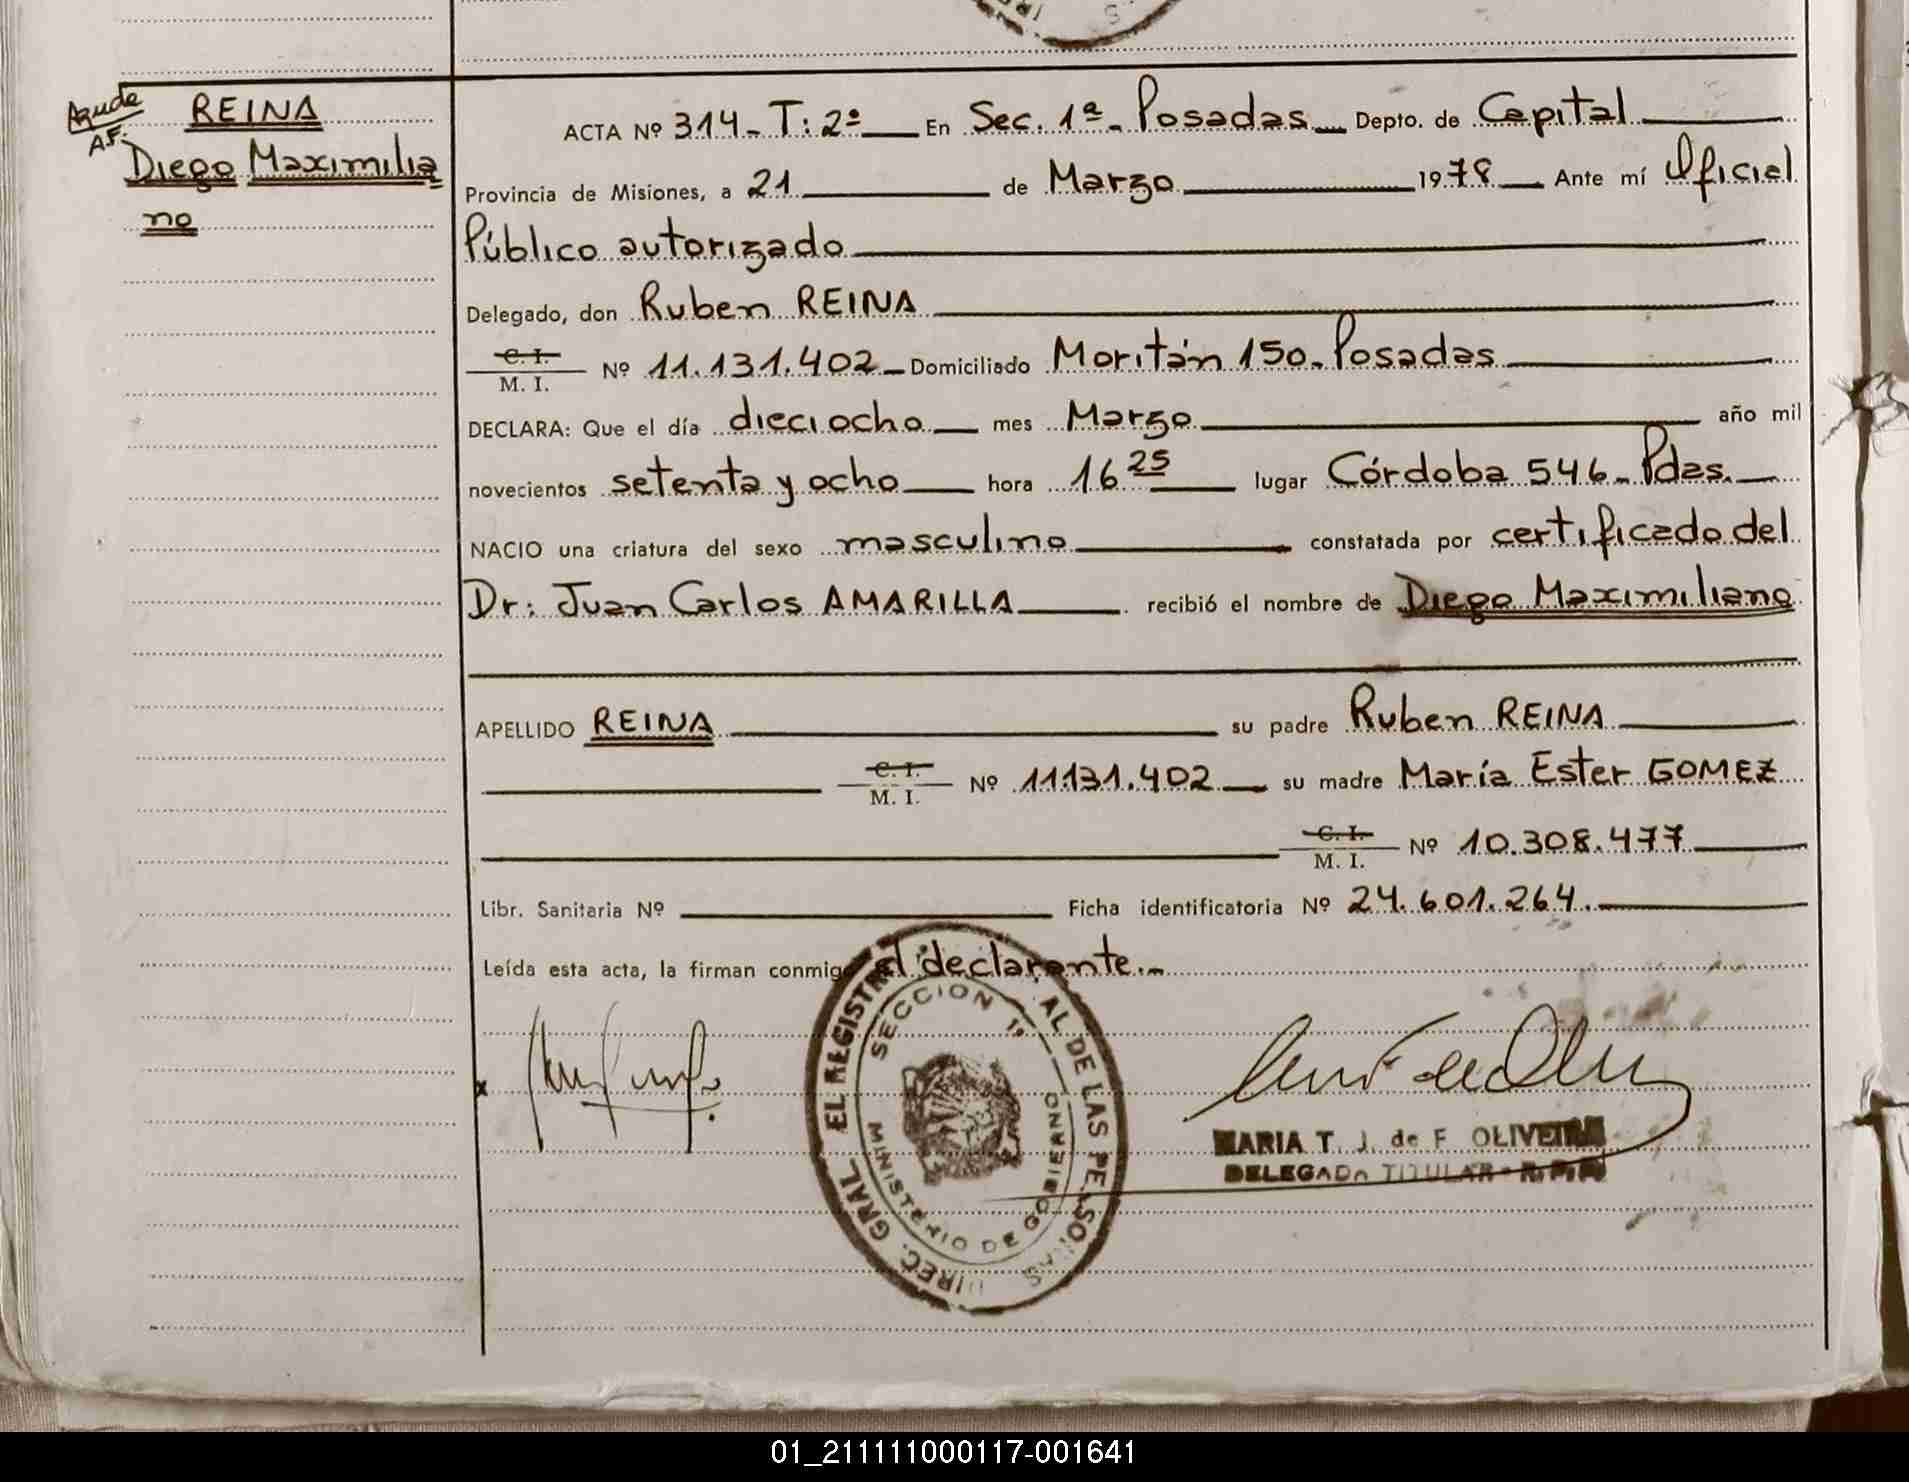 Ayuda
A.F.
REINA
Diego Maximilia=
no
ACTA Nº 314_ T: 2º En Sec. 1ª_ Posadas Depto. de Capital
Provincia de Misiones, a 21 de Marzo 1978 Ante mí Oficial
Público autorizado
Delegado, don Ruben REINA
C. I.
M. I. Nº 11.131.402 Domiciliado Moritán 150_ Posadas
DECLARA: Que el día dieciocho mes Marzo año mil
novecientos setenta y ocho hora 16 25 lugar Córdoba 546_ Pdas.
NACIO una criatura del sexo masculino constatada por certificado del
Dr: Juan Carlos AMARILLA recibió el nombre de Diego Maximiliano
APELLIDO REINA su padre Ruben REINA
C. I.
M. I. Nº 11131.402 su madre María Ester GOMEZ
C. I.
M. I. Nº 10.308.477
Libr. Sanitaria Nº Ficha identificatoria Nº 24.601.264.
Leída esta acta, la firman conmigo el declarante._
x
DIREC. GRAL. EL REGISTR AL DE LAS PERSONAS
SECCION 1ª
MINISTERIO DE GOBIERNO
MARIA T. J. de F. OLIVEIRA
DELEGADA TITULAR - R.P.P.
01_211111000117-001641